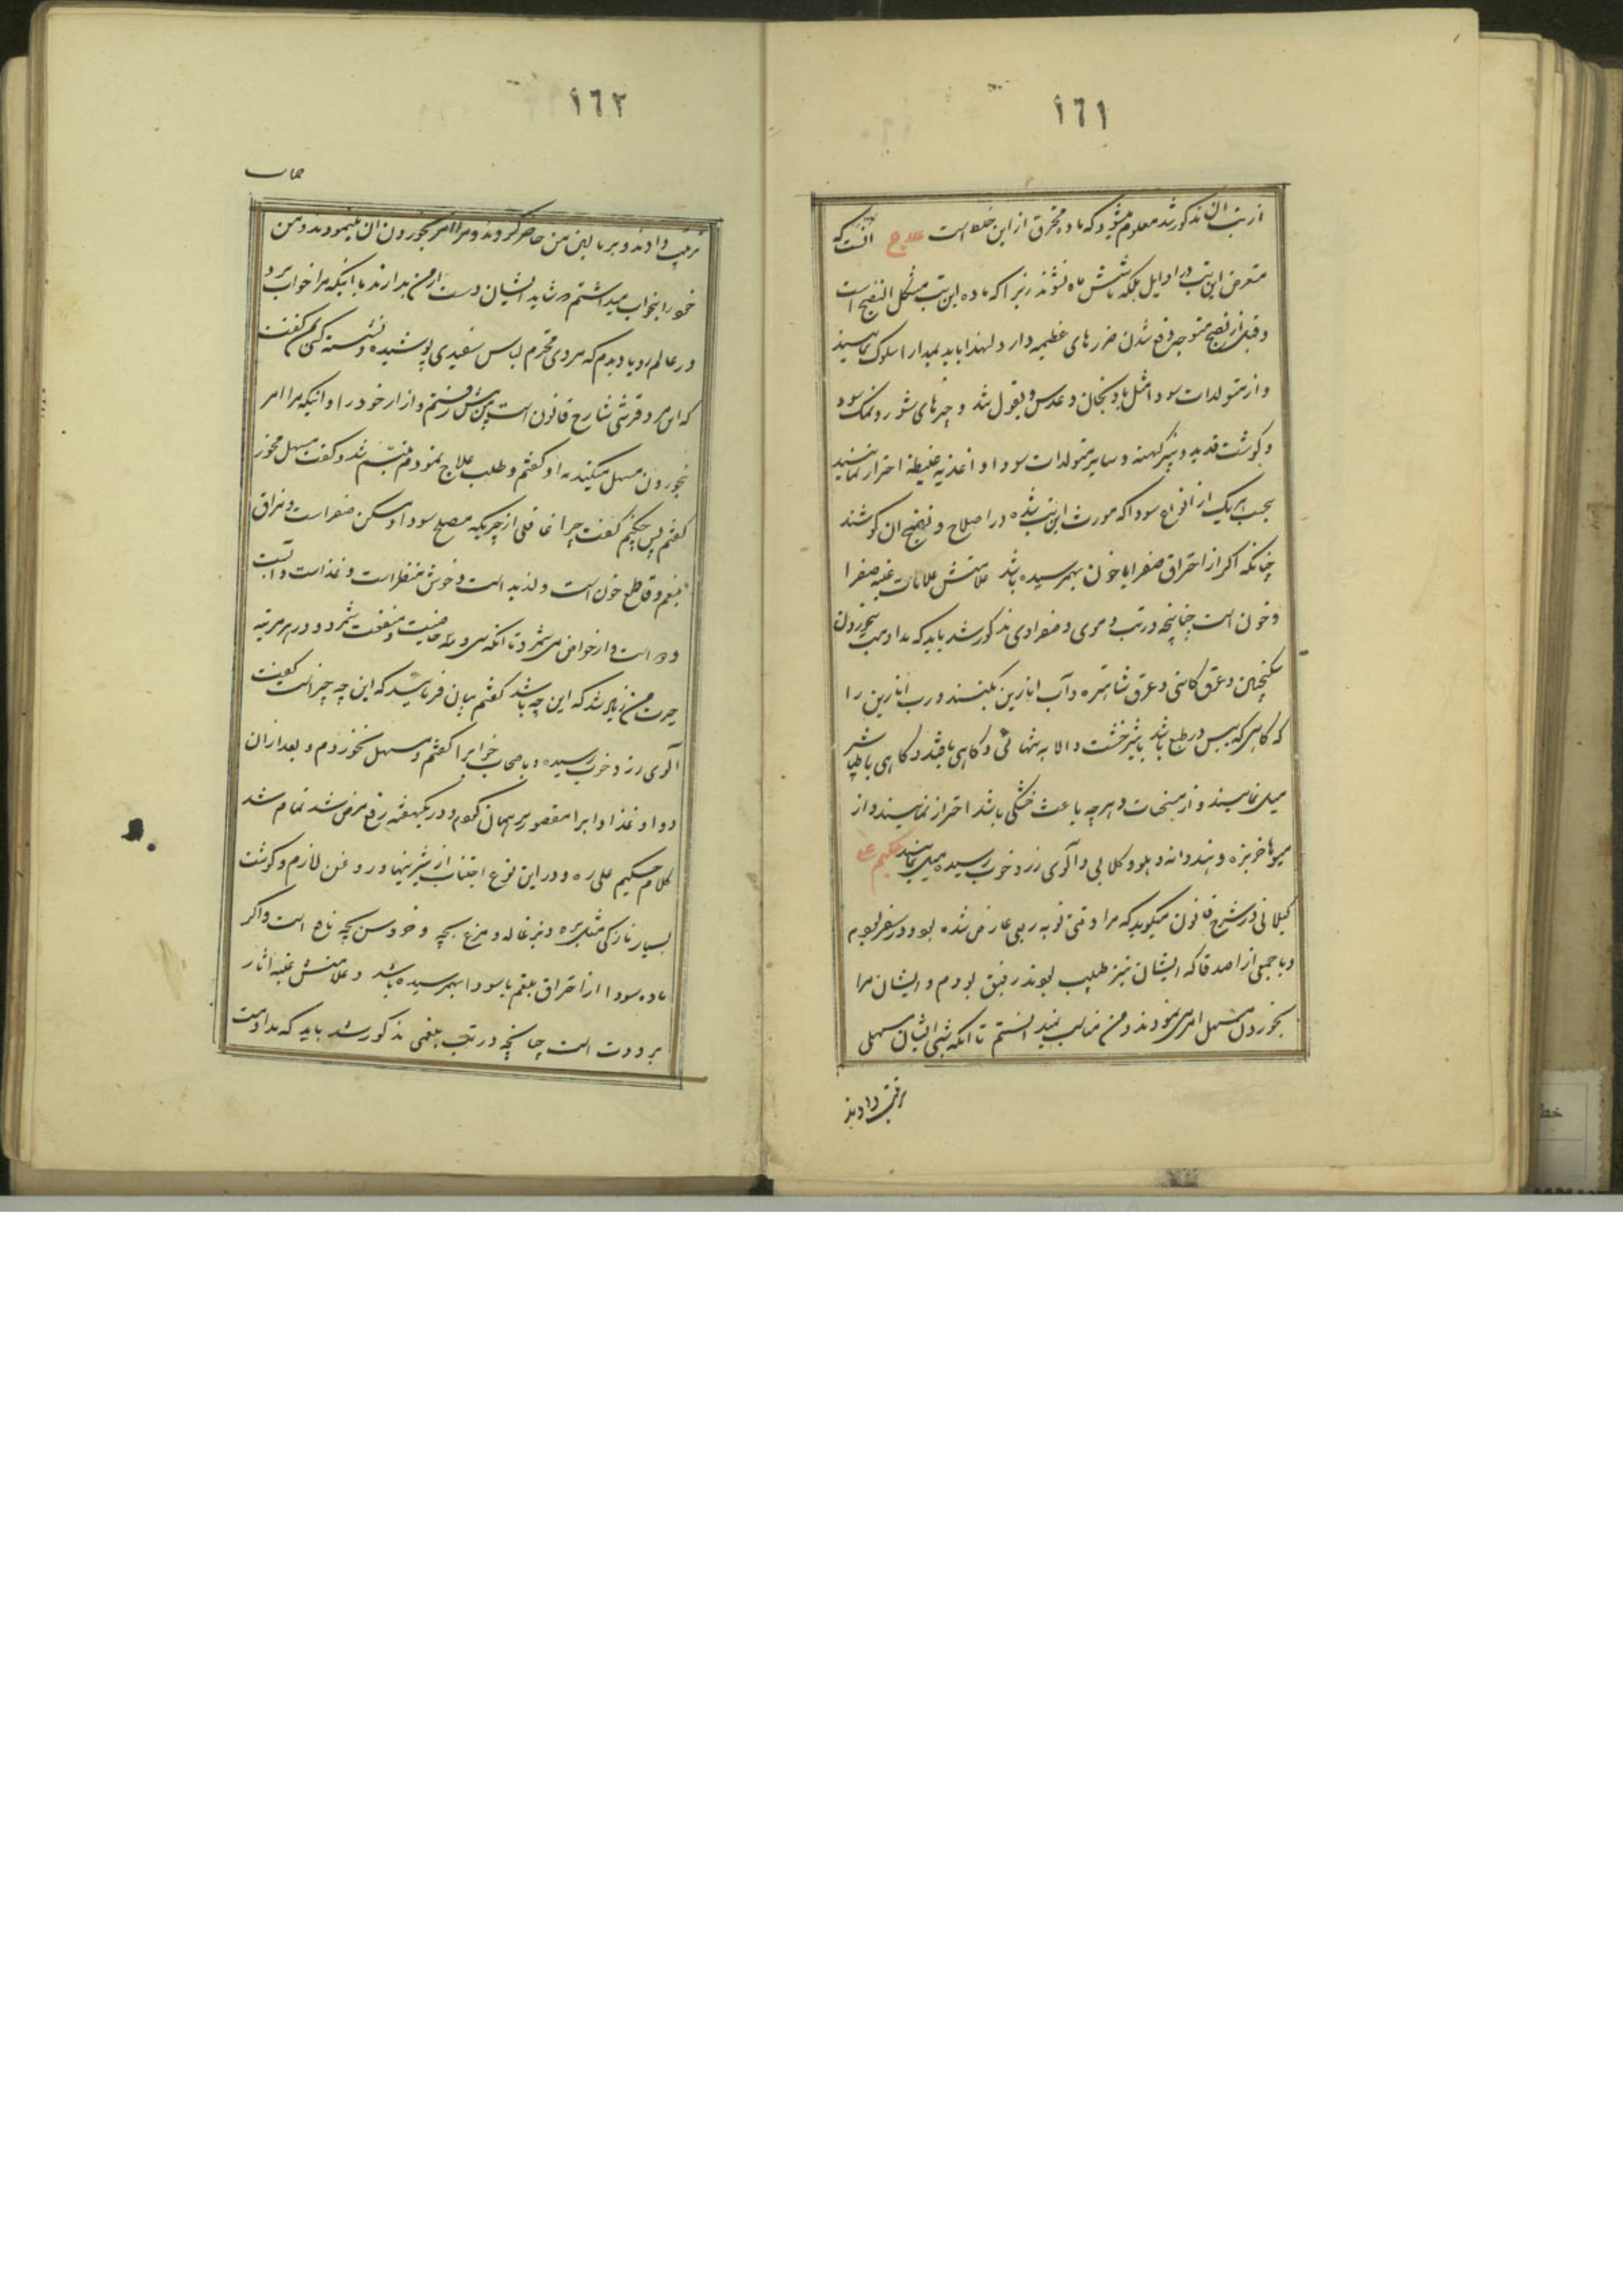 ١٦١
از تب آن مذکور شد معلوم میشود که ماده محترق از این خلط است علاج آنست که
متعرض این تب در اوایل بلکه تا شش ماه نشوند زیرا که ماده این تب مشکل النضج است
و قبل از نضج متوجه دفع شدن ضررهای عظیمه دارد لهذا باید بمدارا سلوک نمایند
و از متولدات سودا مثل بادنجان و عدس و بقول شد و چیزهای شور و نمک سود
و گوشت قدید و پنیر کهنه و سایر متولدات سودا و اغذیه غلیظه احتراز نمایند
بحسب هر یک از انواع سودا که مورث این تب شده در اصلاح و نضج آن کوشند
چنانکه اگر از احتراق صفرا یا خون بهمرسیده باشد علامتش علامات غلبه صفرا
و خون است چنانچه در تب دموی و صفراوی مذکور شد باید که مداومت بخوردن
سکنجبین و عرق کاسنی و عرق شاهتره و آب انارین بکنند و رب انارین را
که گاهی که یبس در طبع باشد با شیرخشت و الا به تنهائی و گاهی با قند و گاهی با طباشیر
میل نمایند و از مسخنات و هرچه باعث خشکی باشد احتراز نمایند و از
میوها خربزه و هندوانه و هلو و گلابی و آلوی زرد خوب رسیده میل نمایند حکیم علی
گیلانی در شرح قانون میگوید که مرا وقتی نوبه ربعی عارض شده بود و در سفر بودم
و با جمعی از اصدقا که ایشان نیز طبیب بودند رفیق بودم و ایشان مرا
بخوردن مسهل امر می نمودند و من مناسب نمیدانستم تا آنکه شبی ایشان مسهلی
ترتیب دادند
١٦٢
ترتیب دادند و بر بالین من حاضر کردند و مرا امر بخوردن آن مینمودند و من
خود را بخواب میداشتم که شاید ایشان دست از من بدارند تا اینکه مرا خواب برد
در عالم رویا دیدم که مردی محترم لباس سفیدی پوشیده و نشسته کسی بمن گفت
که این مرد قرشی شارح قانون است پس پیش رفتم و آزار خود را و اینکه مرا امر
بخوردن مسهل میکنند به او گفتم و طلب علاج نمودم متبسم شد و گفت مسهل مخور
گفتم پس چکنم گفت چرا غافلی از چیزیکه مصلح سودا و مسکن صفراست و مزلق
بلغم و قاطع خون است و لذیذ است و خوش منظر است و غذاست و آبست
و دوا است و از خواص می شمرد تا آنکه سی و سه خاصیت و منفعت شمرد و در هر مرتبه
حیرت من زیاد شد که این چه باشد گفتم بیان فرمایید که این چه چیز است گفت
آلوی زرد خوب رسیده و با صحاب خواب را گفتم و مسهل نخوردم و بعد از آن
دوا و غذا را مقصور بر همان کردم و در یکهفته رفع مرض شد تمام شد
کلام حکیم علی ره و در این نوع اجتناب از شیرینیها و روغن لازم و گوشت
بسیار نازکی مثل بره و بزغاله و مرغ بچه و خروس بچه نافع است و اگر
ماده سودا از احتراق بلغم یا سودا بهمرسیده باشد و علامتش غلبه آثار
برودت است چنانچه در تب بلغمی مذکور شد باید که مداومت